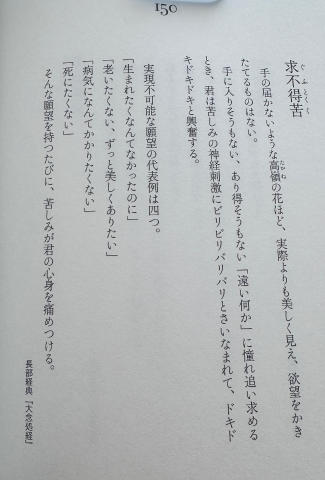 150
求不得苦
ぐふとくく
手の届かないような高嶺の花ほど、実際よりも美しく見え、欲望をかき
たかね
たてるものはない。
手に入りそうもない、あり得そうもない「遠い何か」に憧れ追い求める
とき、君は苦しみの神経刺激にビリビリバリバリとさいなまれて、ドキド
キドキドキと興奮する。
実現不可能な願望の代表例は四つ。
「生まれたくなんてなかったのに」
「老いたくない、ずっと美しくありたい」
「病気になんてかかりたくない」
「死にたくない」
そんな願望を持つたびに、苦しみが君の心身を痛めつける。
長部経典『大念処経』